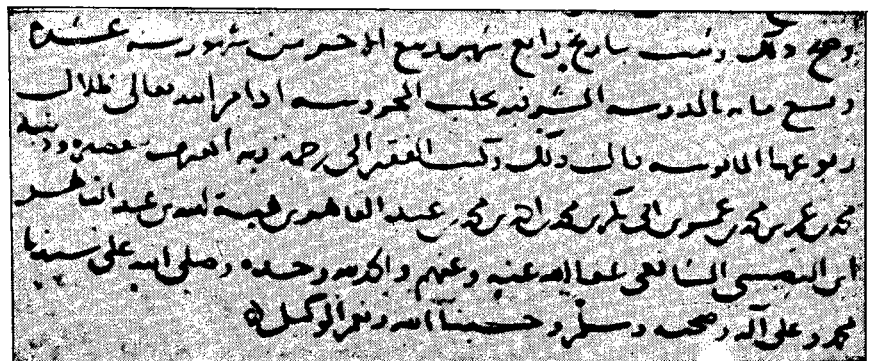 وصح ذلك وثبت بتاريخ رابع شهر ربيع الاخر من شهور سنه عشره
وتسع مايه بالمدرسه الشرفيه بحلب المحروسه ادام الله تعالى ظلال
ربوعها المانوسه قال ذلك وكتب الفقير الى رحمة ربه المعترف
محمد بن عمر بن محمد بن بن ابى بكر بن محمد بن احمد بن محمد بن عبد القاهر بن هبة الله بن عبد القاهر
ابن النصيبى الشافعى عفا الله عنه وعنهم والحمد لله وحده وصلى الله على سيدنا
محمد وعلى آله وصحبه وسلم وحسبنا الله ونعم الوكيل